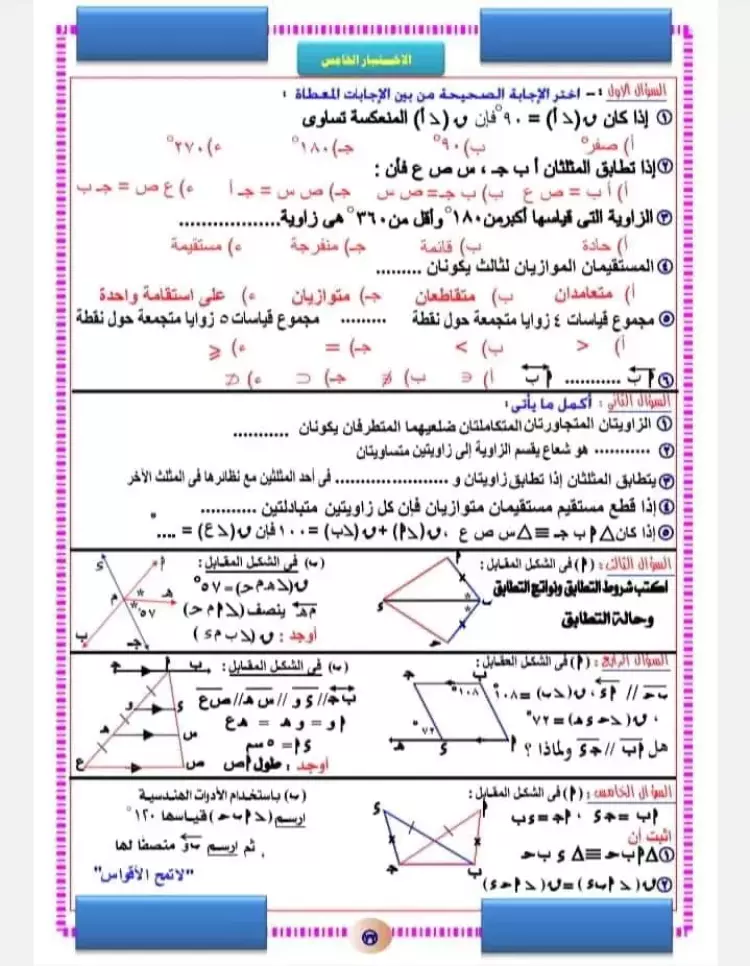 الاختبار الخامس
السؤال الاول :- اختر الإجابة الصحيحة من بين الإجابات المعطاة :
١ إذا كان ق(د أ) = ٩٠° فإن ق (د أ) المنعكسة تساوى
أ) صفر° ب) ٩٠° جـ) ١٨٠° ء) ٢٧٠°
٢ إذا تطابق المثلثان أ ب جـ ، س ص ع فأن :
أ) أ ب = ص ع ب) ب جـ = ص س جـ) ص س = جـ أ ء) ع ص = جـ ب
٣ الزاوية التى قياسها أكبر من ١٨٠° وأقل من ٣٦٠° هى زاوية..................
أ) حادة ب) قائمة جـ) منفرجة ء) مستقيمة
٤ المستقيمان الموازيان لثالث يكونان .........
أ) متعامدان ب) متقاطعان جـ) متوازيان ء) على استقامة واحدة
٥ مجموع قياسات ٤ زوايا متجمعة حول نقطة ......... مجموع قياسات ٥ زوايا متجمعة حول نقطة
أ) < ب) > جـ) = ء) ⩽
٦ أب ........... أب أ) ∈ ب) ∉ جـ) ⊂ ء) ⊄
السؤال الثانى : أكمل ما يأتى :
١ الزاويتان المتجاورتان المتكاملتان ضلعيهما المتطرفان يكونان ...........
٢ ........... هو شعاع يقسم الزاوية إلى زاويتين متساويتان
٣ يتطابق المثلثان إذا تطابق زاويتان و ...................... فى أحد المثلثين مع نظائرها فى المثلث الأخر
٤ إذا قطع مستقيم مستقيمان متوازيان فإن كل زاويتين متبادلتين ...........
٥ إذا كان △ أ ب جـ ≡ △ س ص ع ، ق(دأ) + ق(دب) = ١٠٠ فإن ق(دع) = ....°
السؤال الثالث : (أ) فى الشكل المقابل :
اكتب شروط التطابق ونواتج التطابق
وحالة التطابق
أ
ب
ء
(ب) فى الشكل المقابل :
ق(د هـ م حـ) = ٥٧°
م هـ ينصف (د أ م حـ)
أوجد : ق( د ب م ء )
ء
أ
هـ
م
٥٧°
ب
جـ
السؤال الرابع : (أ) فى الشكل المقابل :
ب حـ // أ ء ، ق(دب) = ١٠٨°
، ق( د حـ ء هـ) = ٧٢°
هل أب // جـ ء ولماذا ؟
جـ
ب
١٠٨°
٧٢°
هـ
ء
أ
(ب) فى الشكل المقابل :
ب جـ // ء و // س هـ // ص ع
أ و = و هـ = هـ ع
ء أ = ٥ سم
أوجد : طول أ ص
جـ
أ
ب
و
ء
هـ
س
ع
ص
السؤال الخامس : (أ) فى الشكل المقابل :
أب = جـ ء ، أ جـ = ء ب
اثبت أن
١ △ أ ب حـ ≡ △ ء ب حـ
٢ ق( د أ ب ء ) = ق( د أ حـ ء )
ء
أ
جـ
ب
(ب) باستخدام الأدوات الهندسية
ارسم (د أ ب حـ) قياسها ١٢٠°
، ثم ارسم ب و منصفا لها
"لاتمح الأقواس"